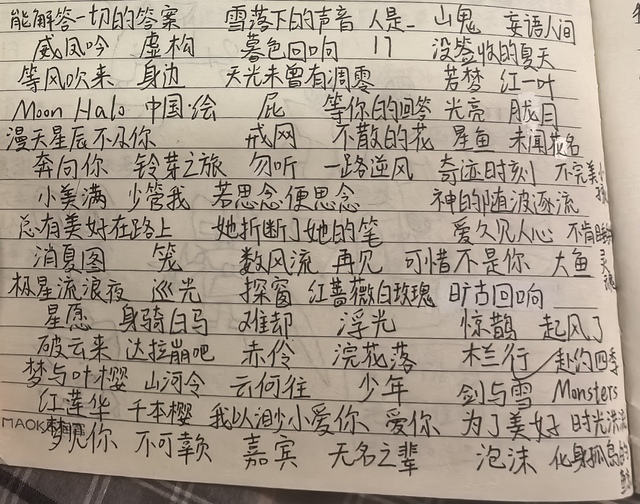 能解答一切的答案 雪落下的声音 人是_ 山鬼 妄语人间
威风吟 虚构 暮色回响 17 没签收的夏天
等风吹来 身边 天光未曾有凋零 若梦 红一叶
Moon Halo 中国·绘 屁 等你的回答 光亮 胧月
漫天星辰不及你 戒网 不散的花 星鱼 未闻花名
奔向你 铃芽之旅 勿听 一路逆风 奇迹时刻 不完美小孩
小美满 少管我 若思念便思念 神的随波逐流
总有美好在路上 她折断了她的笔 爱久见人心 不肯
消夏图 笼 数风流 再见 可惜不是你 大鱼 灵魂
极星流浪夜 巡光 探窗 红蔷薇白玫瑰 旷古回响
星愿 身骑白马 难却 浮光 惊鹊 起风了
破云来 达拉崩吧 赤伶 浣花落 木兰行 赴约四季
梦与叶樱 山河令 云何往 少年 剑与雪 Monsters
红莲华 千本樱 我以渺小爱你 爱你 为了美好 时光
MAOK 梦见你 不可欺 嘉宾 无名之辈 泡沫 化身孤岛的